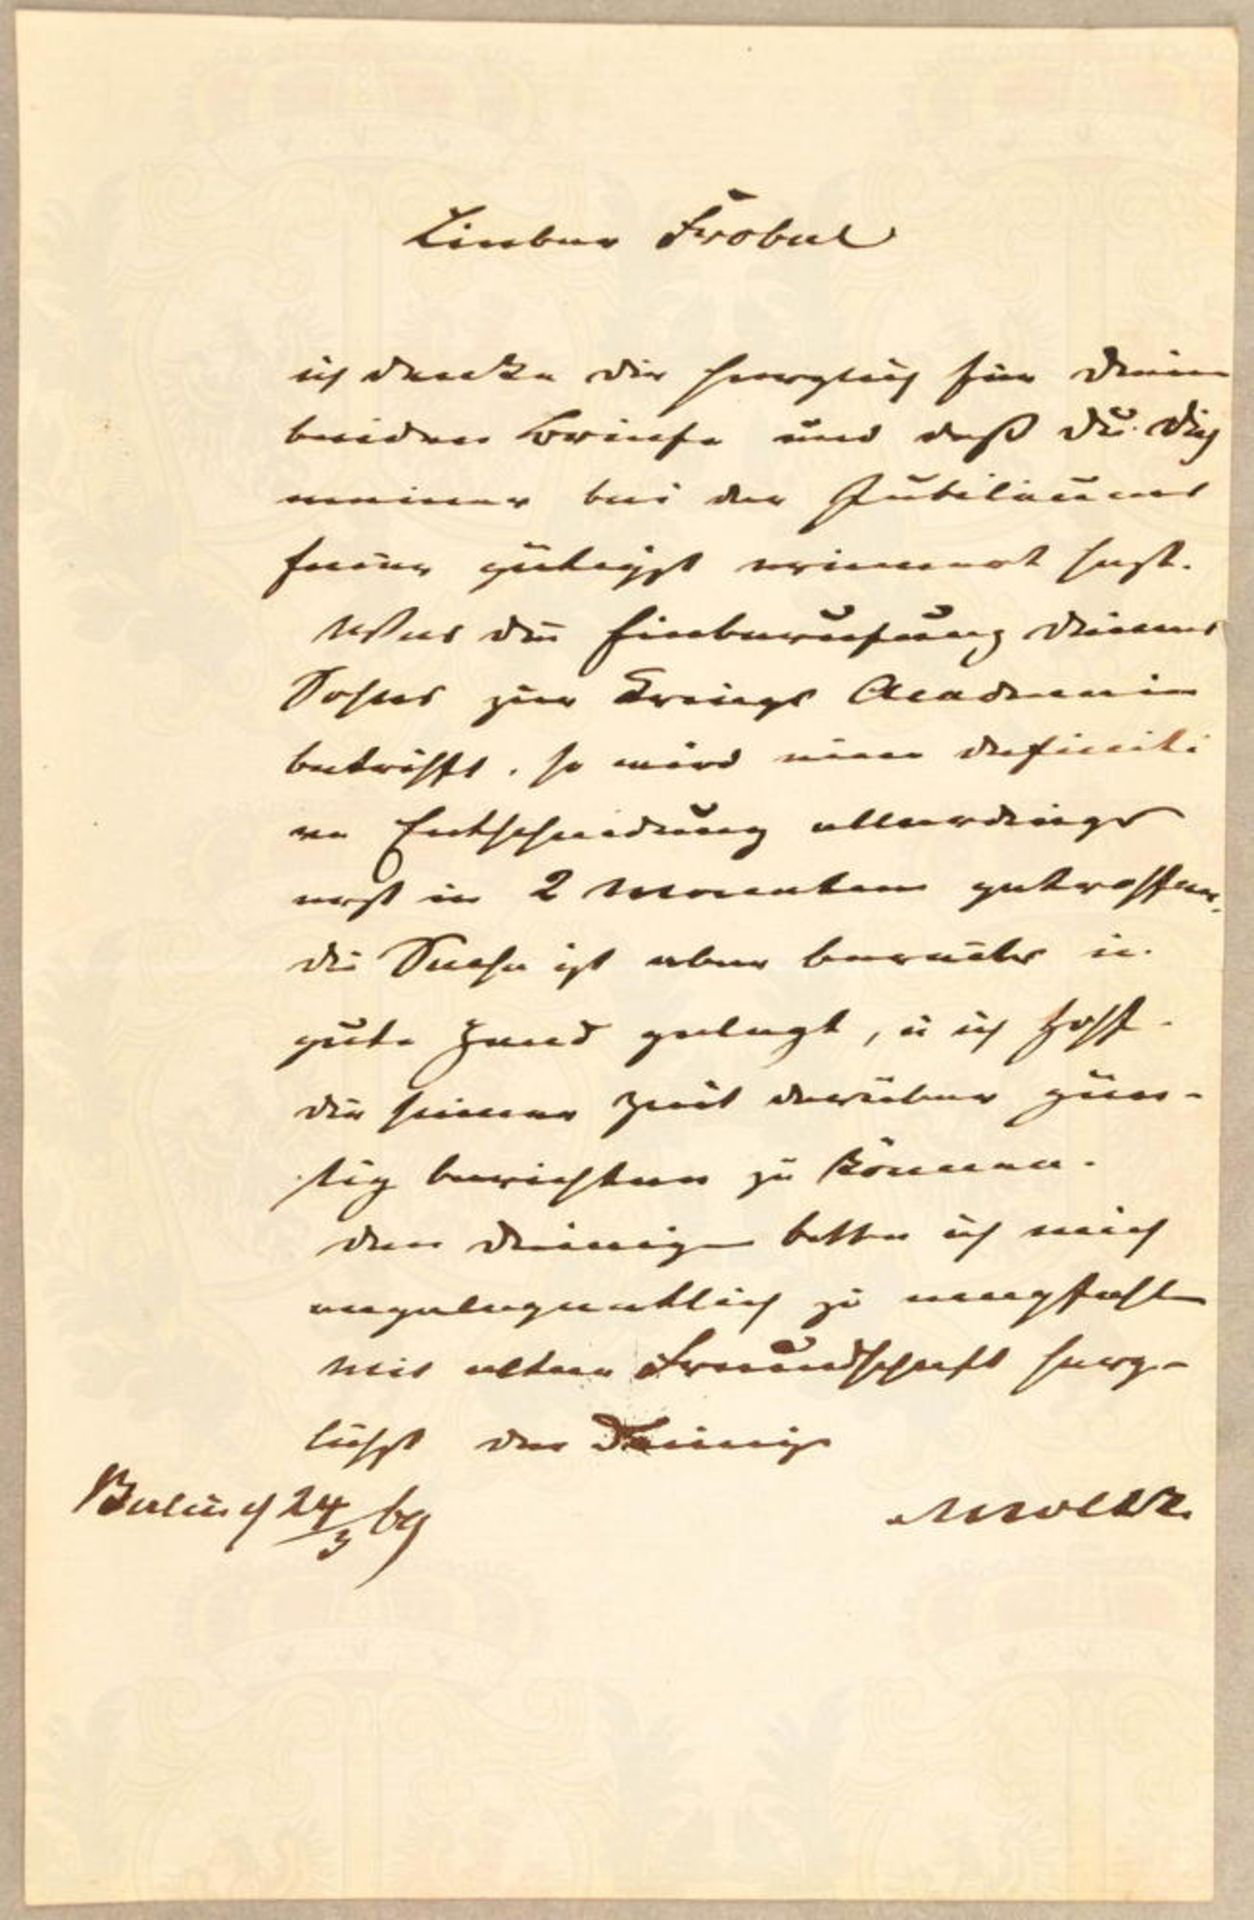 Lieber Frobel
ich danke dir herzlich für Deine
beiden Briefe und daß du Dich
meiner bei der Jubiläums
feier gütigst erinnert hast.
Was die Einberufung deines
Sohnes zur Kriegs Academie
betrifft, so wird eine definiti
ve Entscheidung allerdings
erst in 2 Monaten getroffen,
die Sache ist aber bereits in
gute Hand gelegt, u ich hoffe
dir seiner Zeit darüber güns-
tig berichten zu können.
den Deinigen bitte ich mich
angelegentlich zu empfehlen
Mit alter Freundschaft herz-
lichst der Deinige
Berlin d 24/3 69
Moltke.